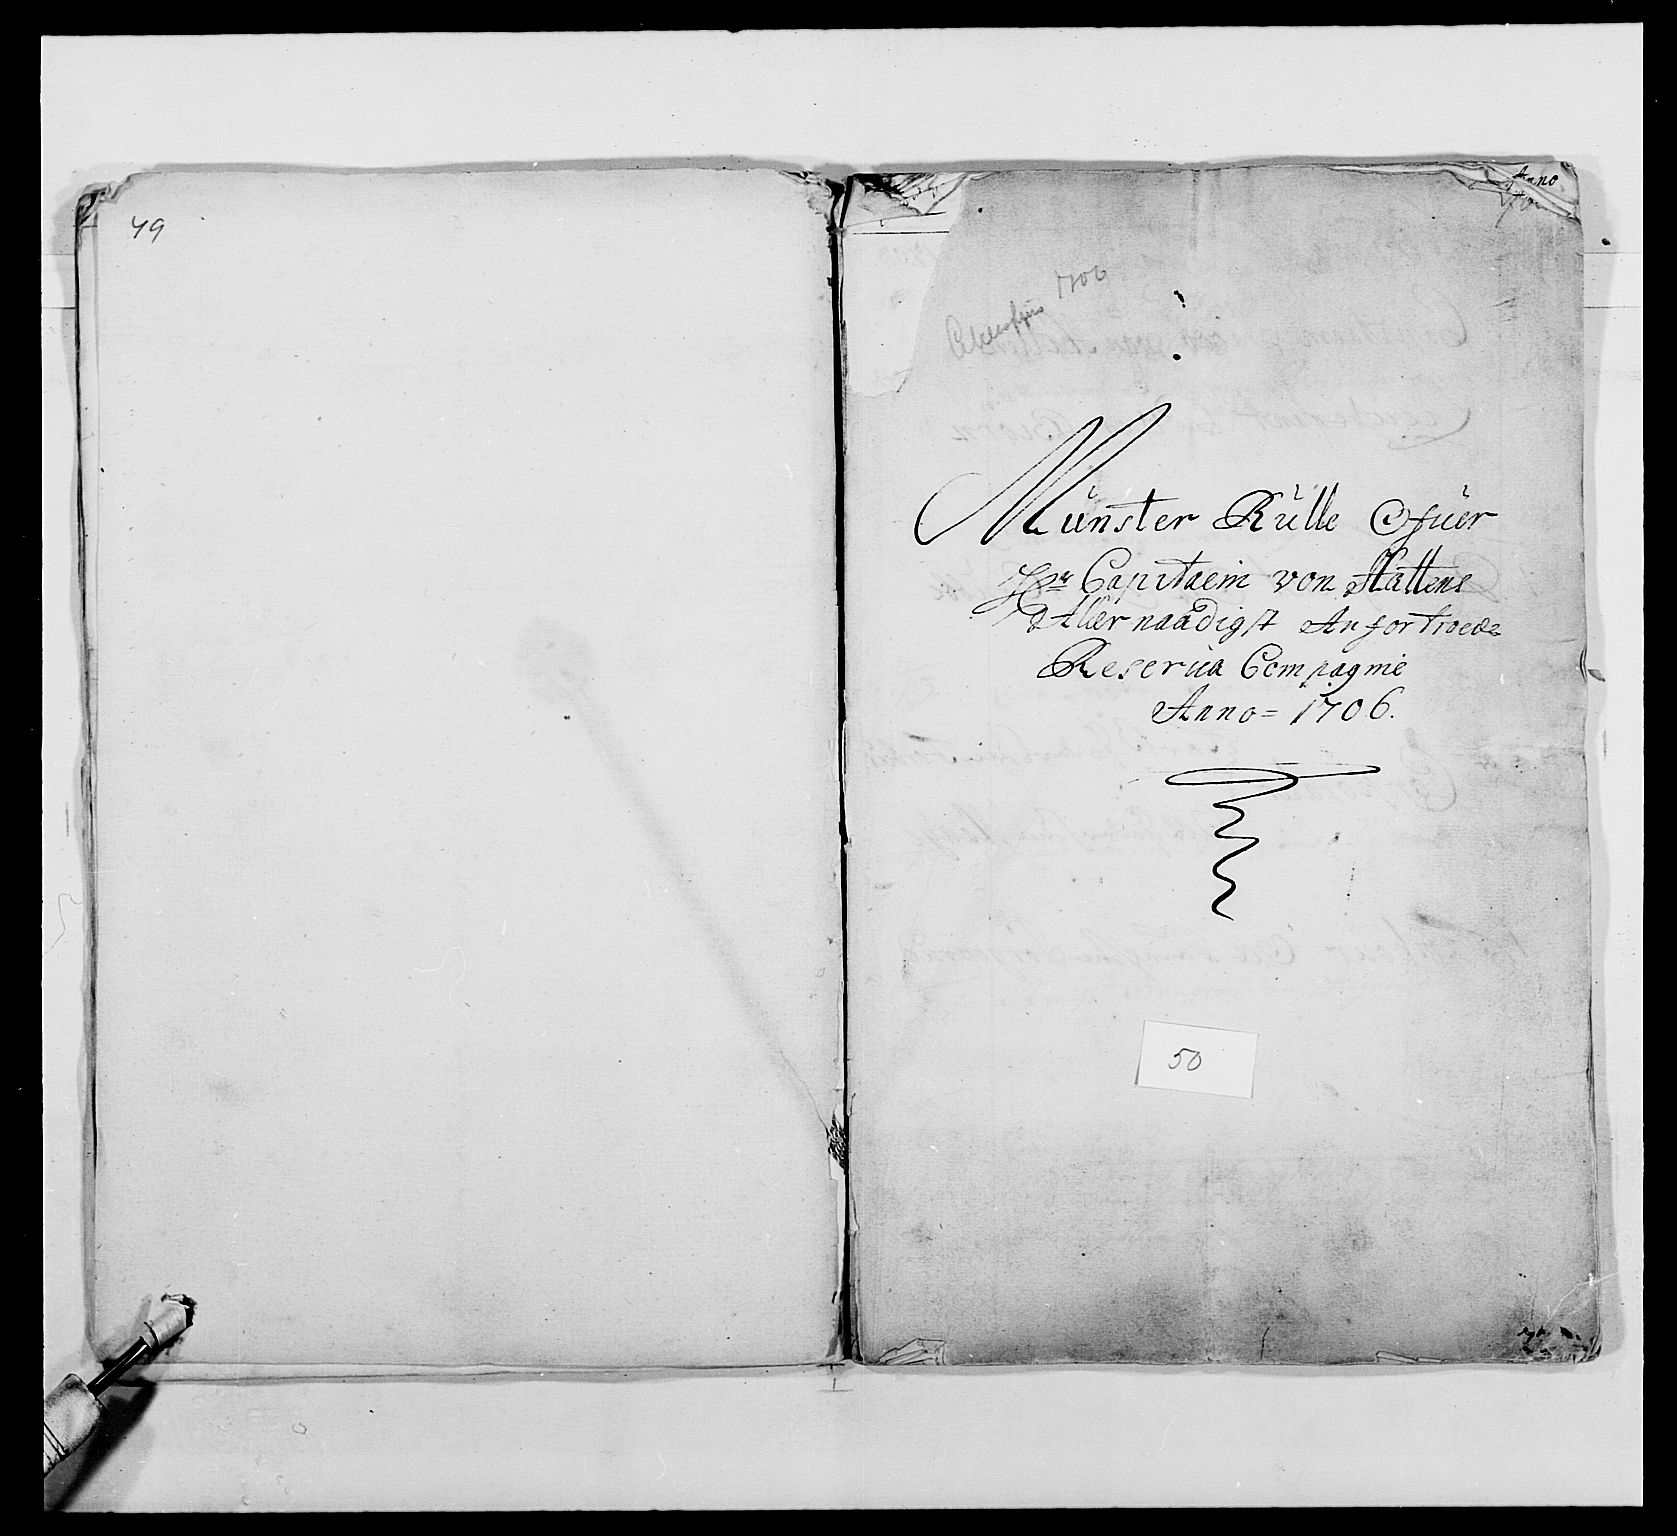 49
Anno
Akershus 1706
Münster Rülle Ofuer
Hr Capitaein von Hattens
Aller naadigst Anfortroede
Reserua Compagnie
Anno= 1706.
50